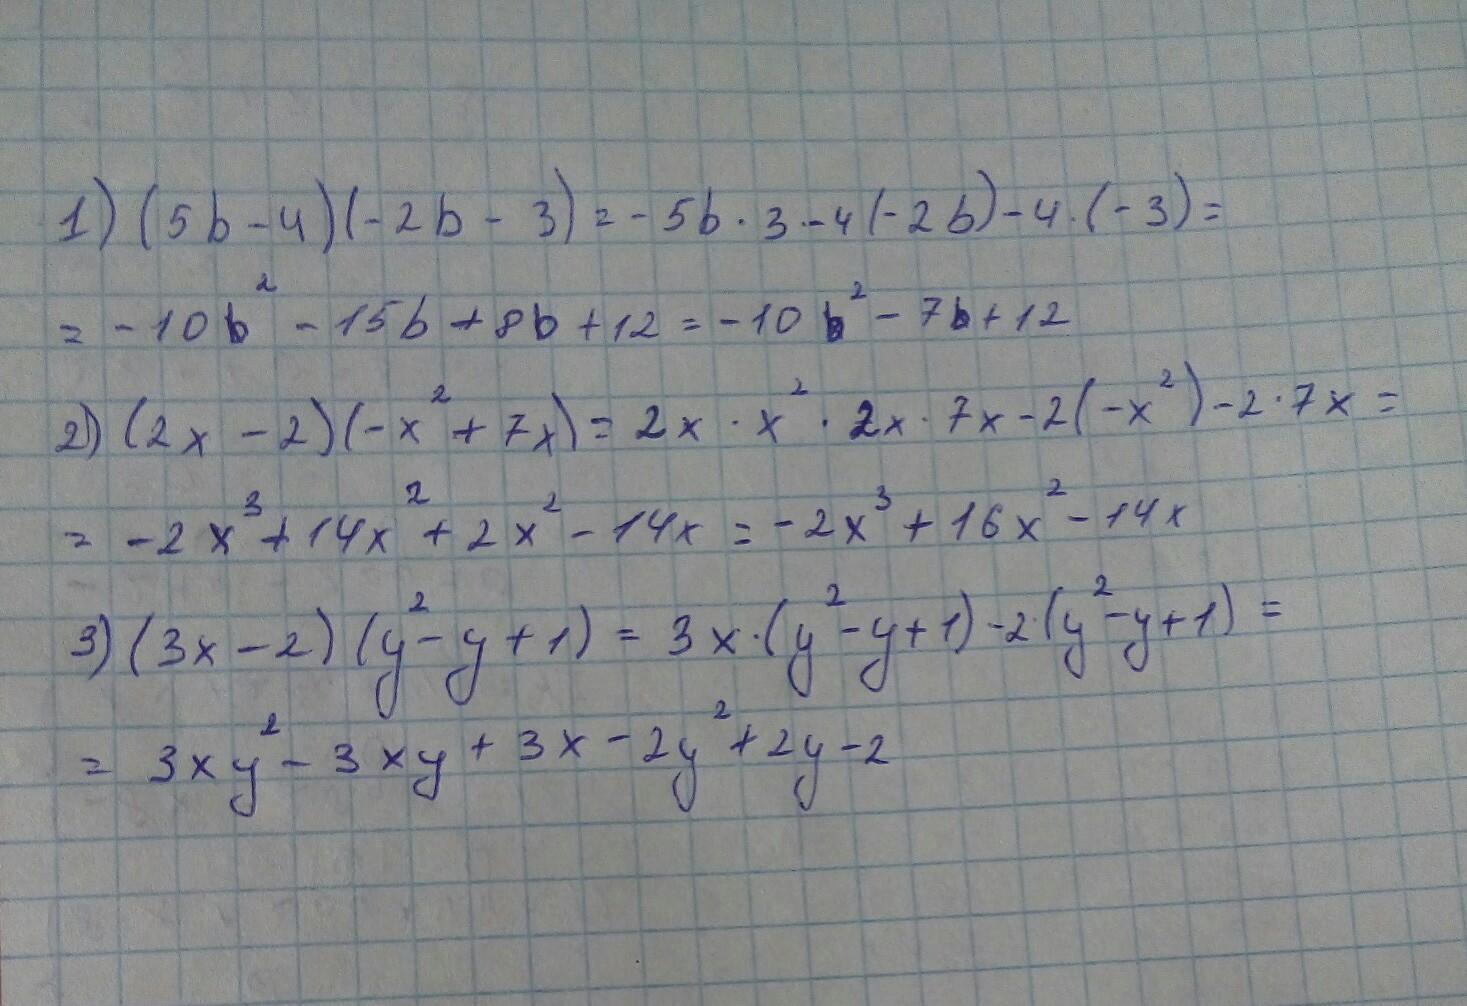 1) (5b - 4)(-2b - 3) = -5b · 3 - 4(-2b) - 4 · (-3) =
= -10b² - 15b + 8b + 12 = -10b² - 7b + 12
2) (2x - 2)(-x² + 7x) = 2x · x² · 2x · 7x - 2(-x²) - 2 · 7x =
= -2x³ + 14x² + 2x² - 14x = -2x³ + 16x² - 14x
3) (3x - 2)(y² - y + 1) = 3x · (y² - y + 1) - 2 · (y² - y + 1) =
= 3xy² - 3xy + 3x - 2y² + 2y - 2